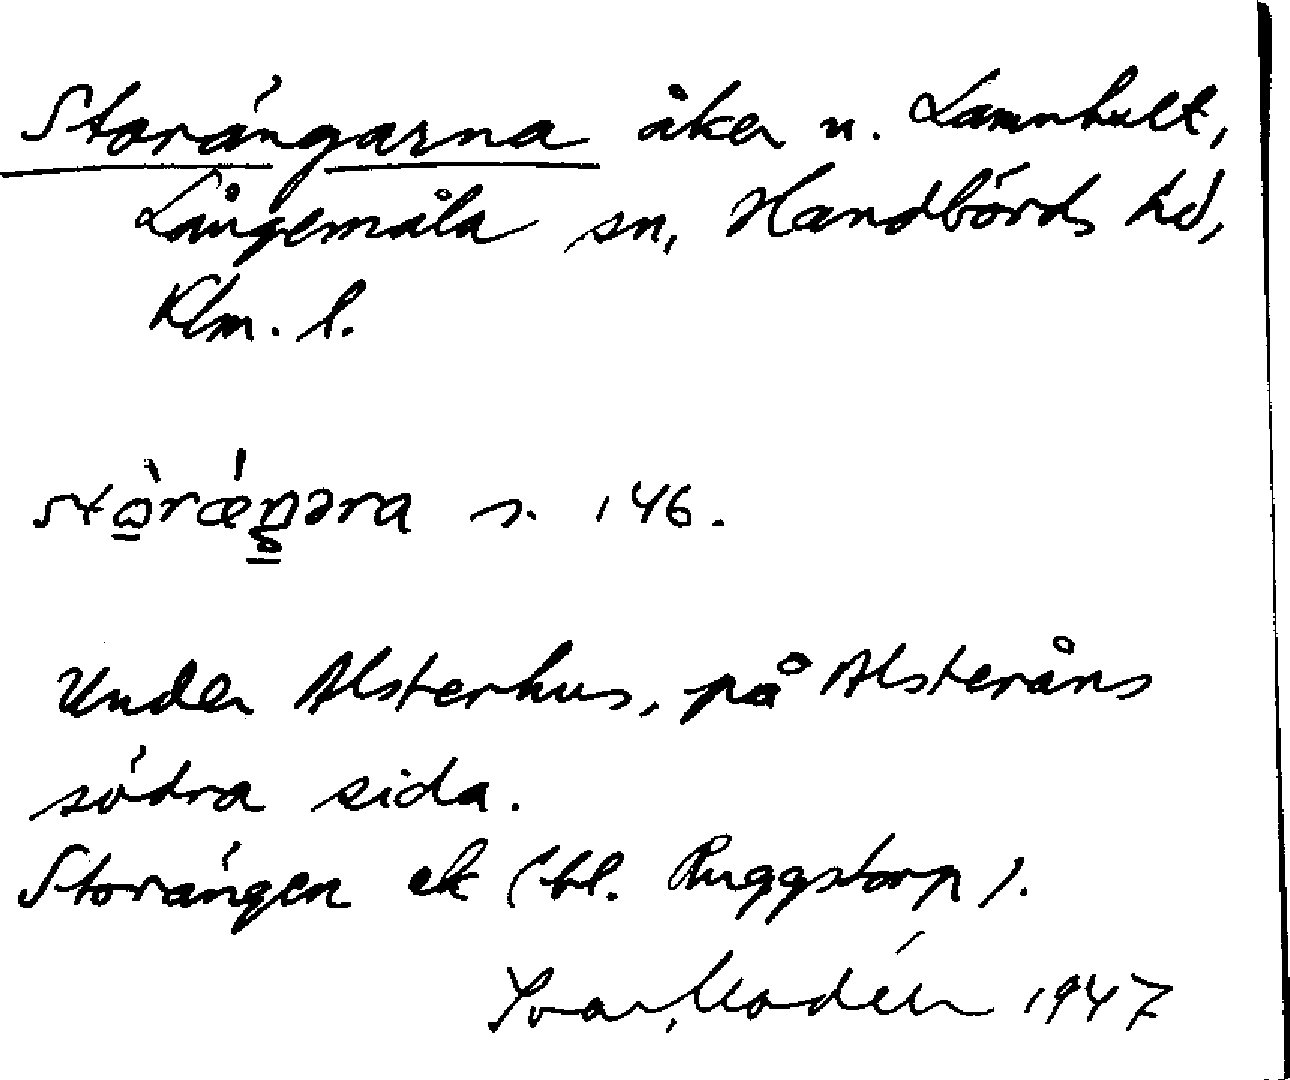 Storängarna åker n. Lamnhult,
Långemåla sn, Handbörds hd,
Klm. l.
stòrǽŋəra s. 146.
Under Alsterhus, på Alsteråns
södra sida.
Storängen ek (bl. Ruggstorp).
Ivar Modéer 1947